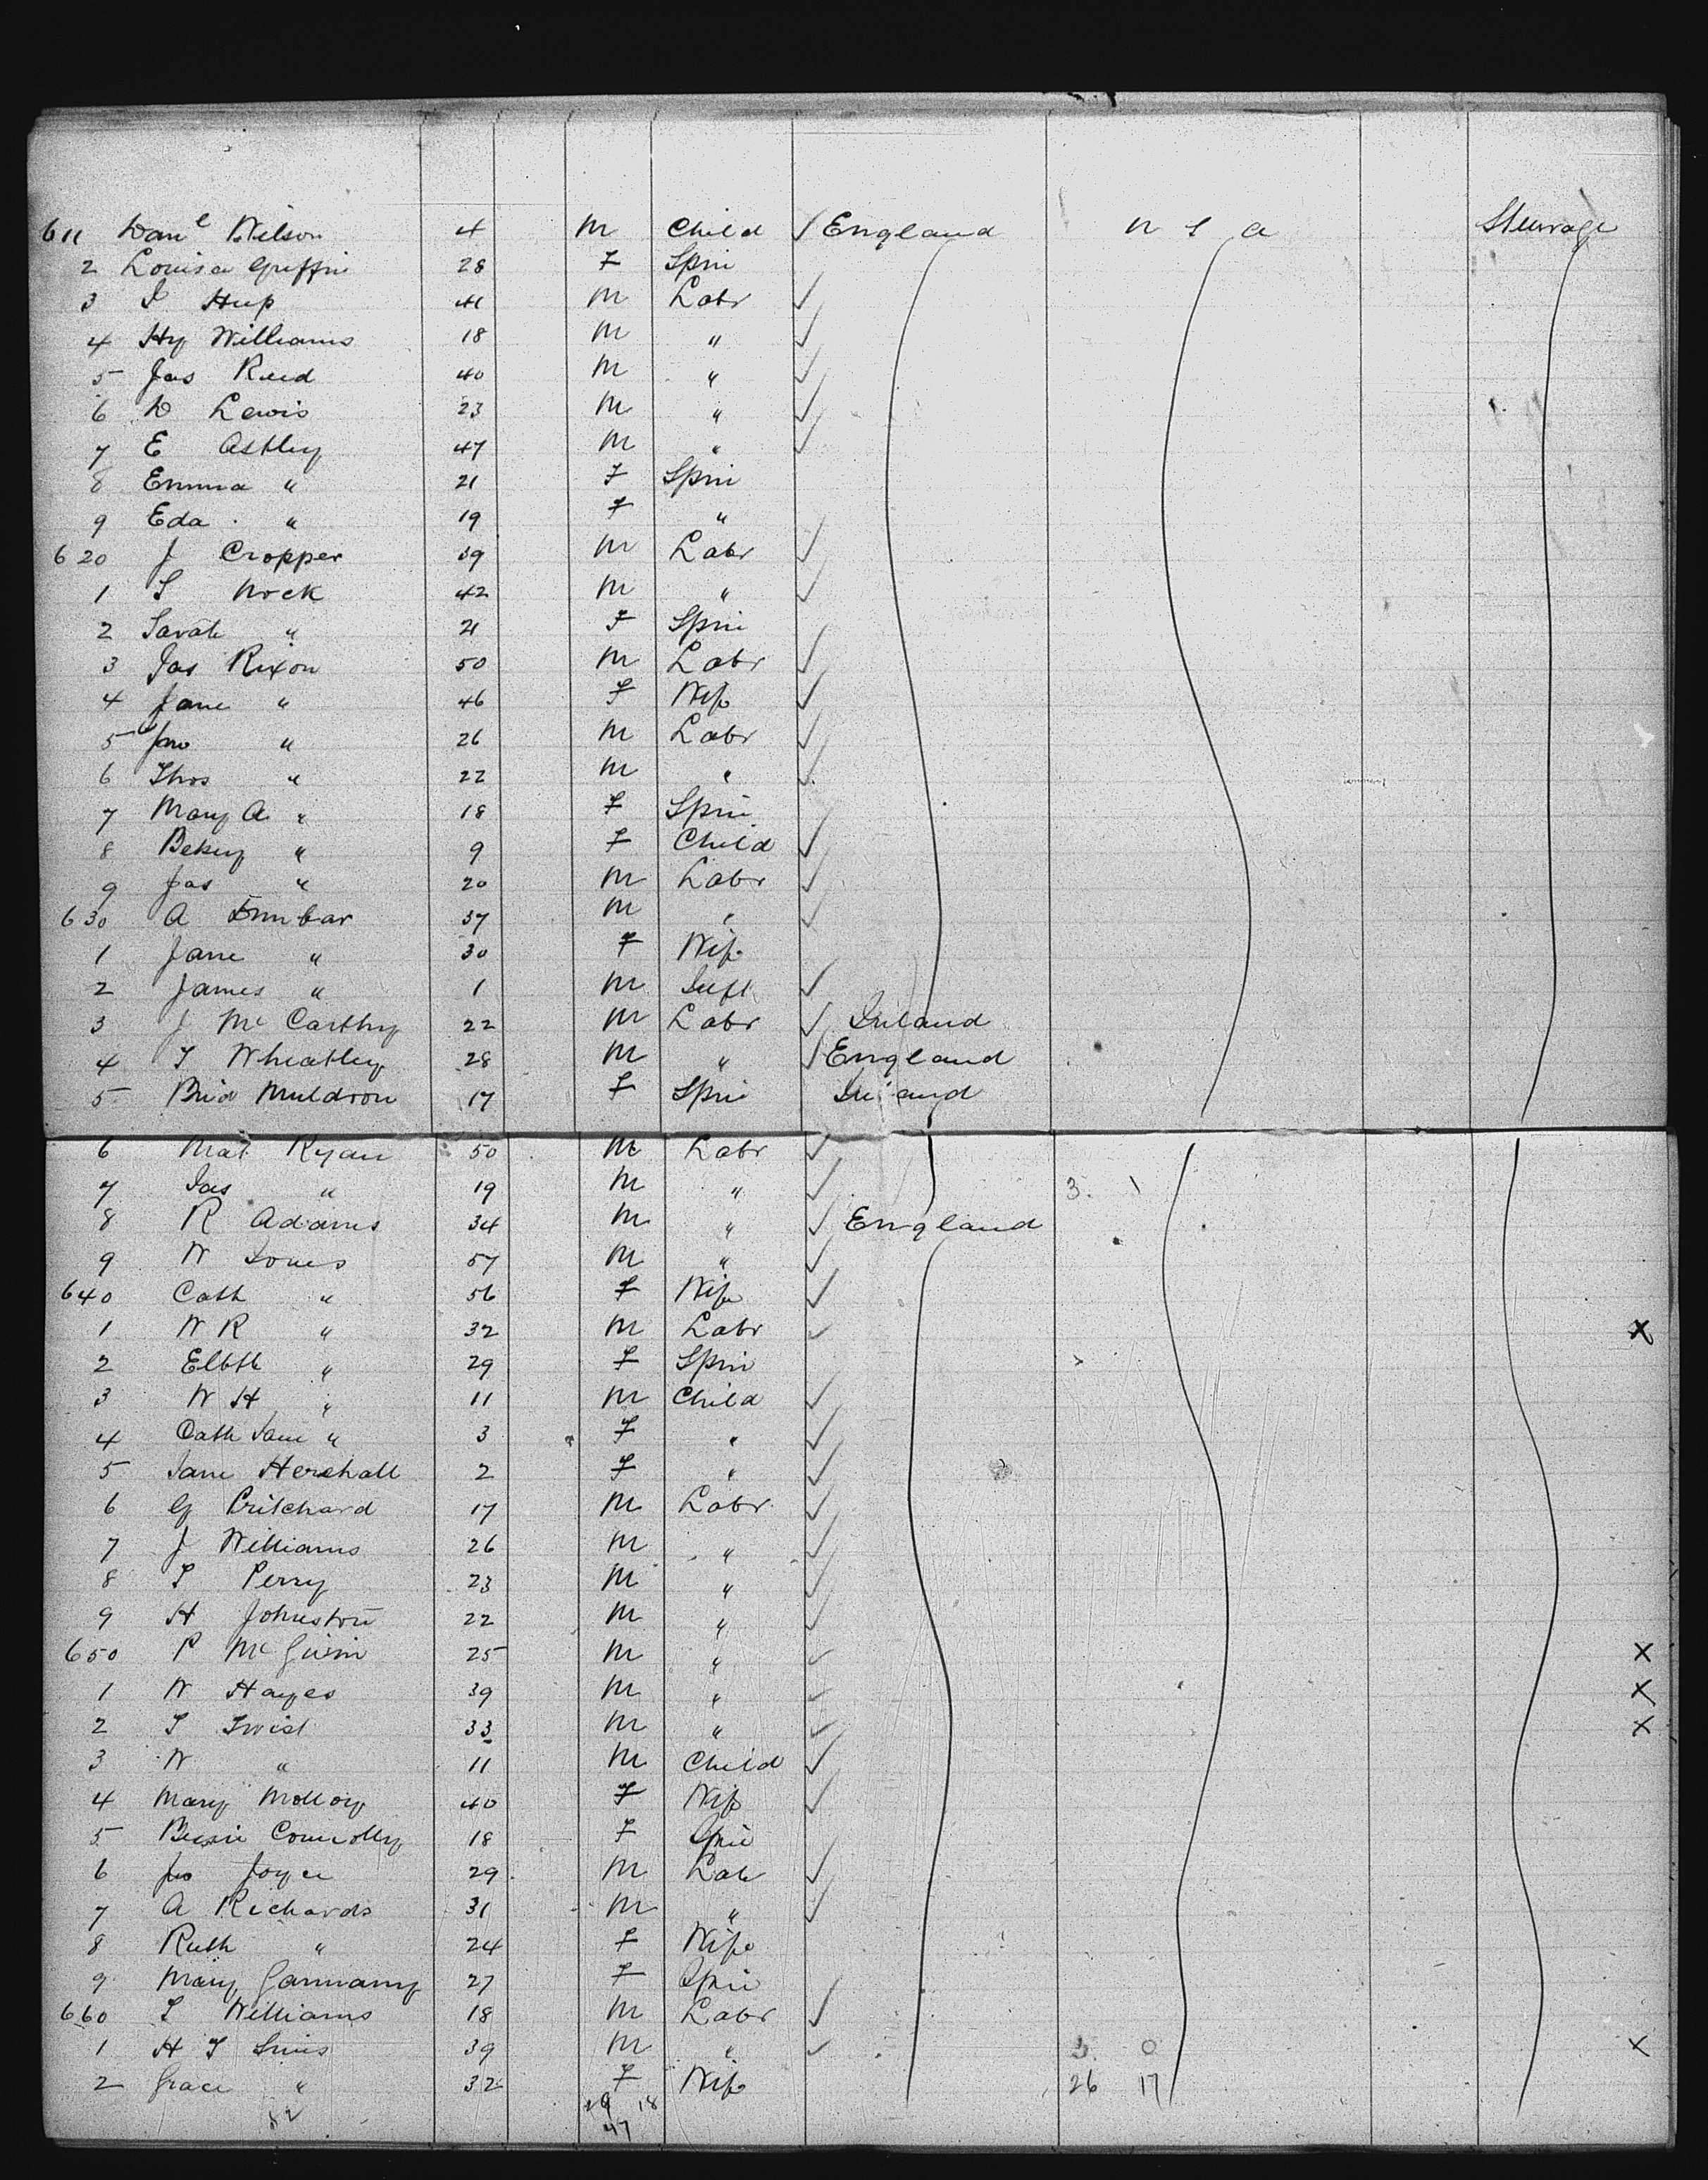 611 Danl Wilson 4 M Child √ England U S A Steerage
2 Louisa Griffin 28 F Spin
3 Hup 41 M Labr √
4 Hy Williams 18 M " √
5 Jas Reid 40 M " √
6 D Lewis 23 M " √
7 E Astley 47 M " √
8 Emma " 21 F Spin
9 Eda " 19 F "
620 J Cropper 39 M Labr √
1 S Nock 42 M " √
2 Sarah " 21 F Spin
3 Jas Rixon 50 M Labr √
4 Jane " 46 F Wife √
5 Jno " 26 M Labr √
6 Thos " 22 M " √
7 Mary A " 18 F Spin
8 Bekey " 9 F Child √
9 Jas " 20 M Labr √
630 A Dunbar 37 M " √
1 Jane " 30 F Wife
2 James " 1 M Inft √
3 J McCarthy 22 M Labr √ Ireland
4 T Wheatley 28 M " √ England
5 Brid Muldron 17 F Spin Ireland
6 Mat Ryan 50 M Labr √
7 Jas " 19 M " √ 3
8 R Adams 34 M " √ England
9 W Jones 57 M " √
640 Cath " 56 F Wife √
1 W R " 32 M Labr √ X
2 Elbth " 29 F Spin
3 W H " 11 M Child √
4 Cath Jane " 3 F " √
5 Jane Hershall 2 F " √
6 G Pritchard 17 M Labr √
7 J Williams 26 M " √
8 T Perry 23 M " √
9 H Johnston 22 M " √
650 P McGuin 25 M " √ X
1 W Hayes 39 M " √ X
2 T Twist 33 M " √ X
3 W " 11 M Child √
4 Mary Molloy 40 F Wife √
5 Bessie Connolly 18 F Spin
6 Jno Joyce 29 M Lab √
7 A Richards 31 M " √
8 Ruth " 24 F Wife
9 Mary 27 F Spin
660 Williams 18 M Labr √
1 H T Sims 39 M " √ 3 0 X
2 Grace " 32 F Wife 26 17
52 29 18
47